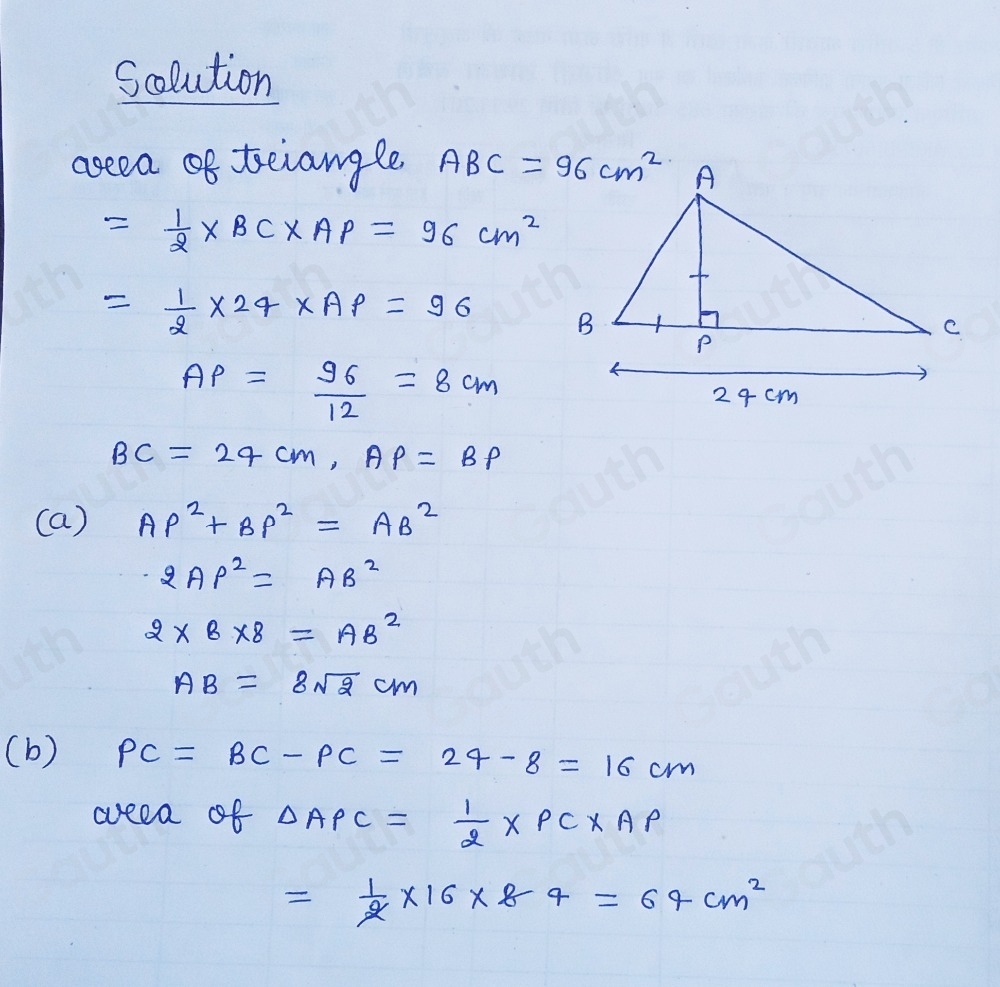 Solution
area of triangle ABC = 96 cm²
= 1/2 × BC × AP = 96 cm²
= 1/2 × 24 × AP = 96
AP = 96/12 = 8 cm
BC = 24 cm, AP = BP
A
B
P
C
24 cm
(a) AP² + BP² = AB²
2AP² = AB²
2 × 8 × 8 = AB²
AB = 8√2 cm
(b) PC = BC - PC = 24 - 8 = 16 cm
area of △APC = 1/2 × PC × AP
= 1/2 × 16 × 8 4 = 64 cm²